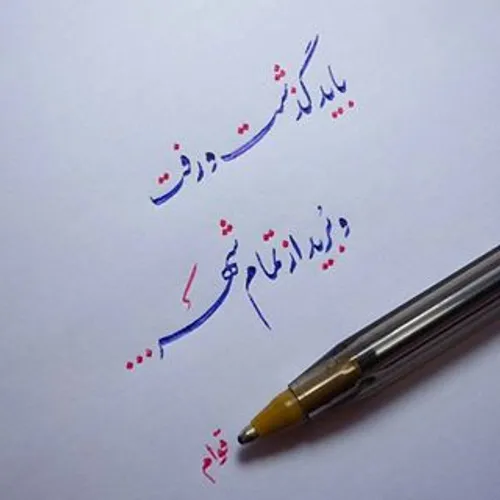 باید گذشت و رفت
و بُرید از تمام شهر...
قوام